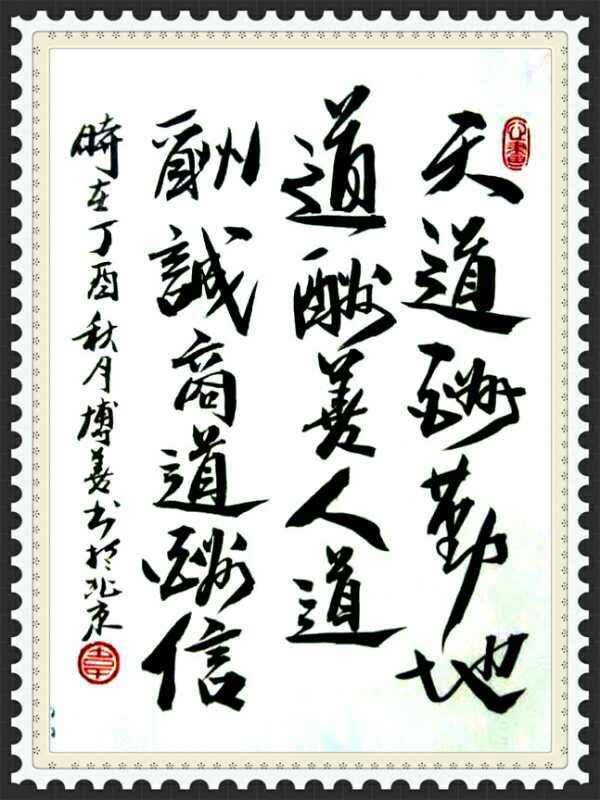 天道酬勤地
道酬善人道
酬誠商道酬信
時在丁酉秋月博善书於北京